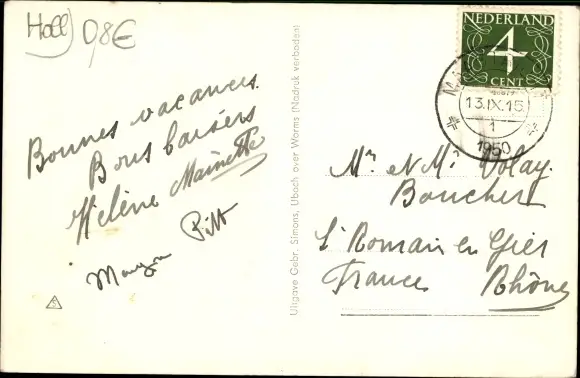 Holl 0,8€
Bonnes vacances.
Bons baisers
Hélène Mainette
Pitt
Uitgave Gebr. Simons, Ubach over Worms (Nadruk verboden)
NEDERLAND
4
CENT
13.IX.15
1
1950
Mr et Me Volay.
Boucher
St Romain en Gier
France Rhône